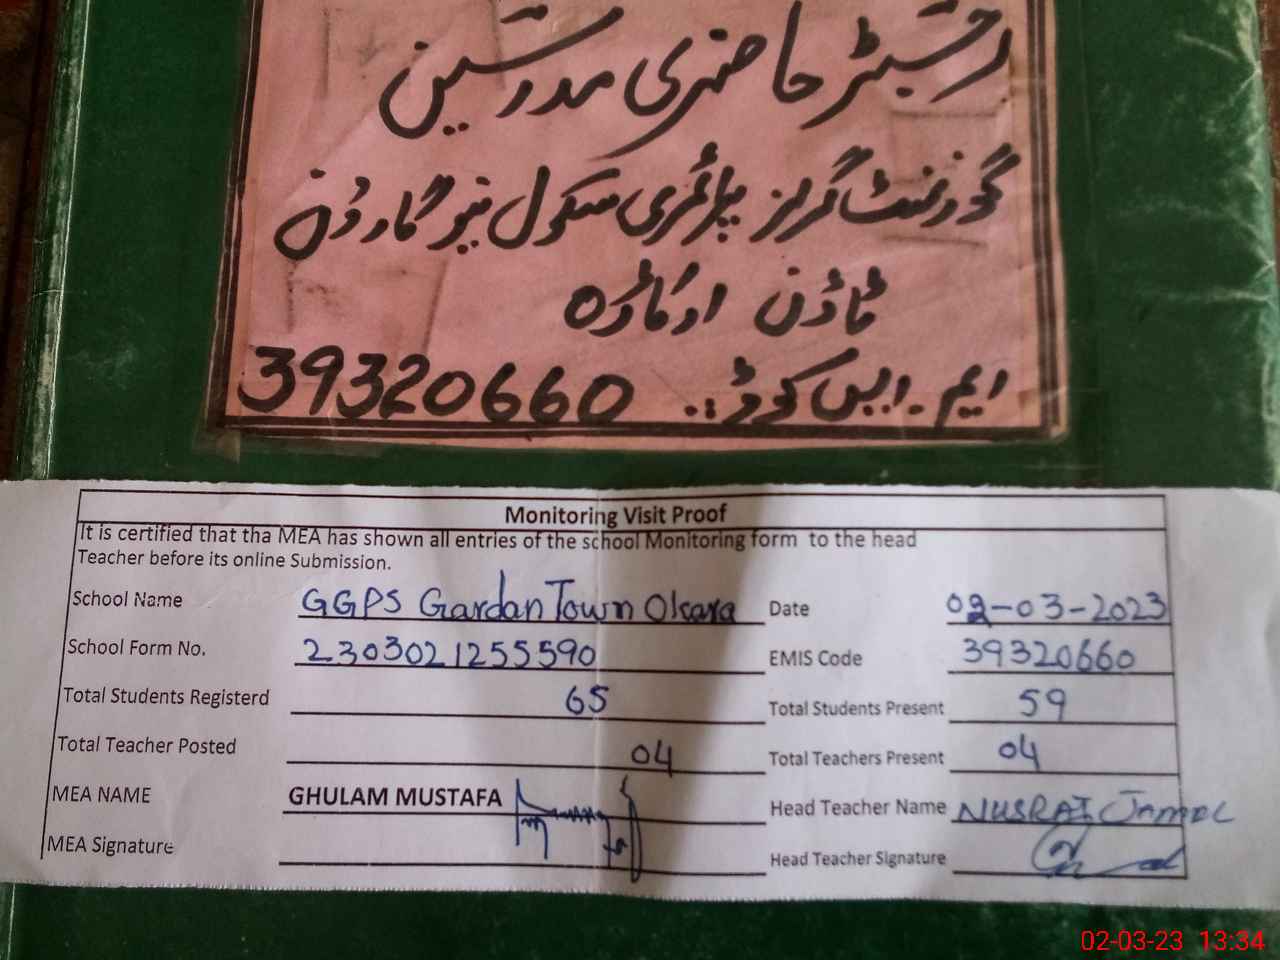 رجسٹر حاضری مدرسین
گورنمنٹ گرلز پرائمری سکول نیو گارڈن
ٹاؤن اوکاڑہ
ایم۔ایس کوڈ:. 39320660
Monitoring Visit Proof
It is certified that tha MEA has shown all entries of the school Monitoring form to the head
Teacher before its online Submission.
School Name GGPS Gardan Town Okara Date 02-03-2023
School Form No. 2303021255590 EMIS Code 39320660
Total Students Registerd 65 Total Students Present 59
Total Teacher Posted 04 Total Teachers Present 04
MEA NAME GHULAM MUSTAFA Head Teacher Name NUSRAT Jamal
MEA Signature Head Teacher Signature
02-03-23 13:34